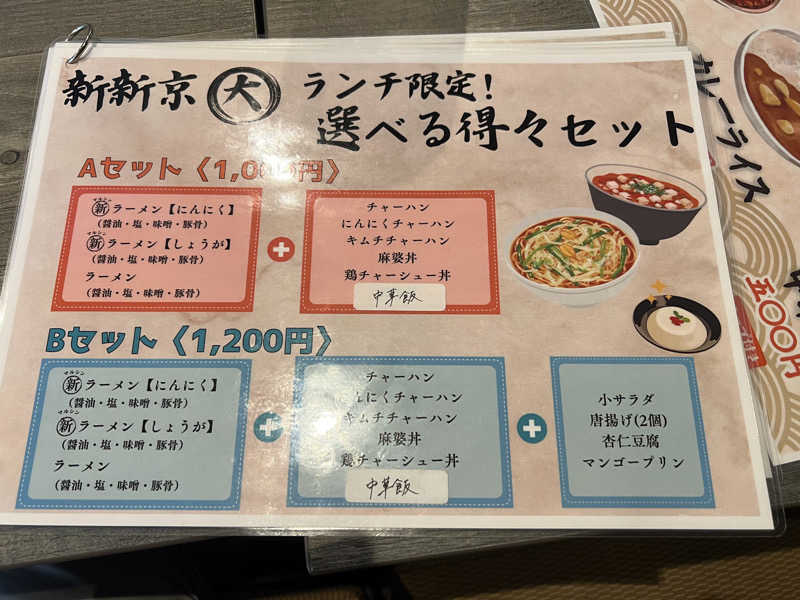 新新京 大
ランチ限定!
選べる得々セット
Aセット〈1,000円〉
マルシン
新ラーメン【にんにく】
(醤油・塩・味噌・豚骨)
マルシン
新ラーメン【しょうが】
(醤油・塩・味噌・豚骨)
ラーメン
(醤油・塩・味噌・豚骨)
+
チャーハン
にんにくチャーハン
キムチチャーハン
麻婆丼
鶏チャーシュー丼
中華飯
Bセット〈1,200円〉
マルシン
新ラーメン【にんにく】
(醤油・塩・味噌・豚骨)
マルシン
新ラーメン【しょうが】
(醤油・塩・味噌・豚骨)
ラーメン
(醤油・塩・味噌・豚骨)
+
チャーハン
にんにくチャーハン
キムチチャーハン
麻婆丼
鶏チャーシュー丼
中華飯
+
小サラダ
唐揚げ(2個)
杏仁豆腐
マンゴープリン
カレーライス
五〇〇円